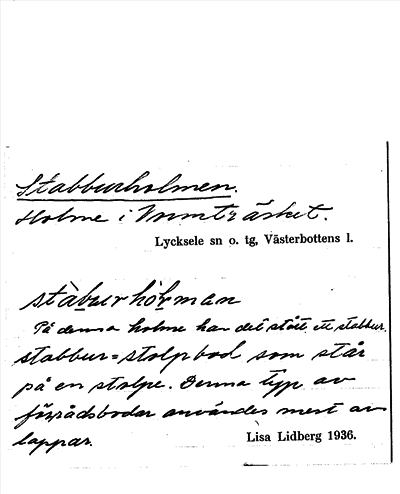 Stabburholmen.
Holme i Vinnträsket.
Lycksele sn o. tg, Västerbottens l.
På denna holme har det stått ett stabbur.
stabbur=stolpbod som står
på en stolpe. Denna typ av
förrådsbodar användes mest av
lappar.
Lisa Lidberg 1936.